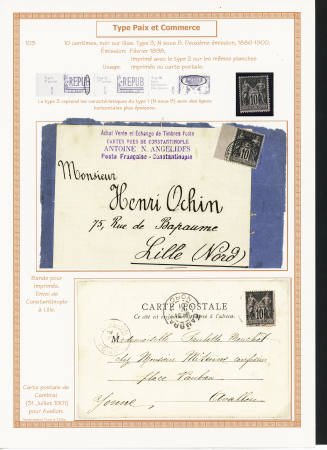 Type Paix et Commerce
103 10 centimes, noir sur lilas. Type 3, N sous B. Deuxième émission, 1886-1900.
Émission: Février 1898.
Imprimé avec le type 2 sur les mêmes planches
Usage: imprimés ou carte postale.
REPUB REPUB
Le type 3 reprend les caractéristiques du type 1 (N sous B) avec des lignes
horizontales plus épaisses.
Achat Vente et Echange de Timbres-Poste
CARTES VUES DE CONSTANTINOPLE
ANTOINE N. ANGELIDES
Poste Française - Constantinople
Monsieur
Henri Ochin
75, Rue de Bapaume
Lille (Nord)
Bande pour
imprimés.
Envoi de
Constantinople
à Lille.
CARTE POSTALE
Ce côté est exclusivement réservé à l'adresse.
Mademoiselle
chez Monsieur
place Vauban
Yonne Avallon
Carte postale de
Cambrai
(31 juillet 1901)
pour Avallon.